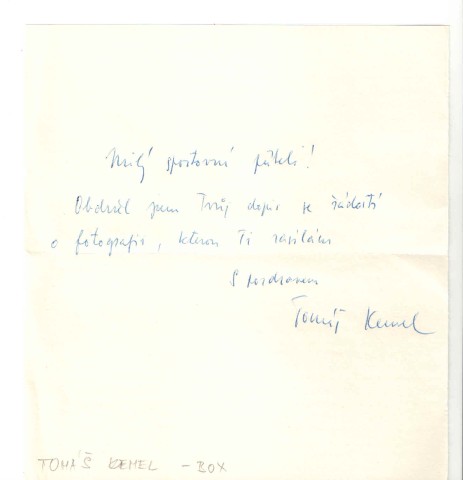 Milý sportovní příteli!
Obdržel jsem Tvůj dopis se žádostí
o fotografii, kterou Ti zasílám
S pozdravem
Tomáš Kemel
TOMÁŠ KEMEL - BOX